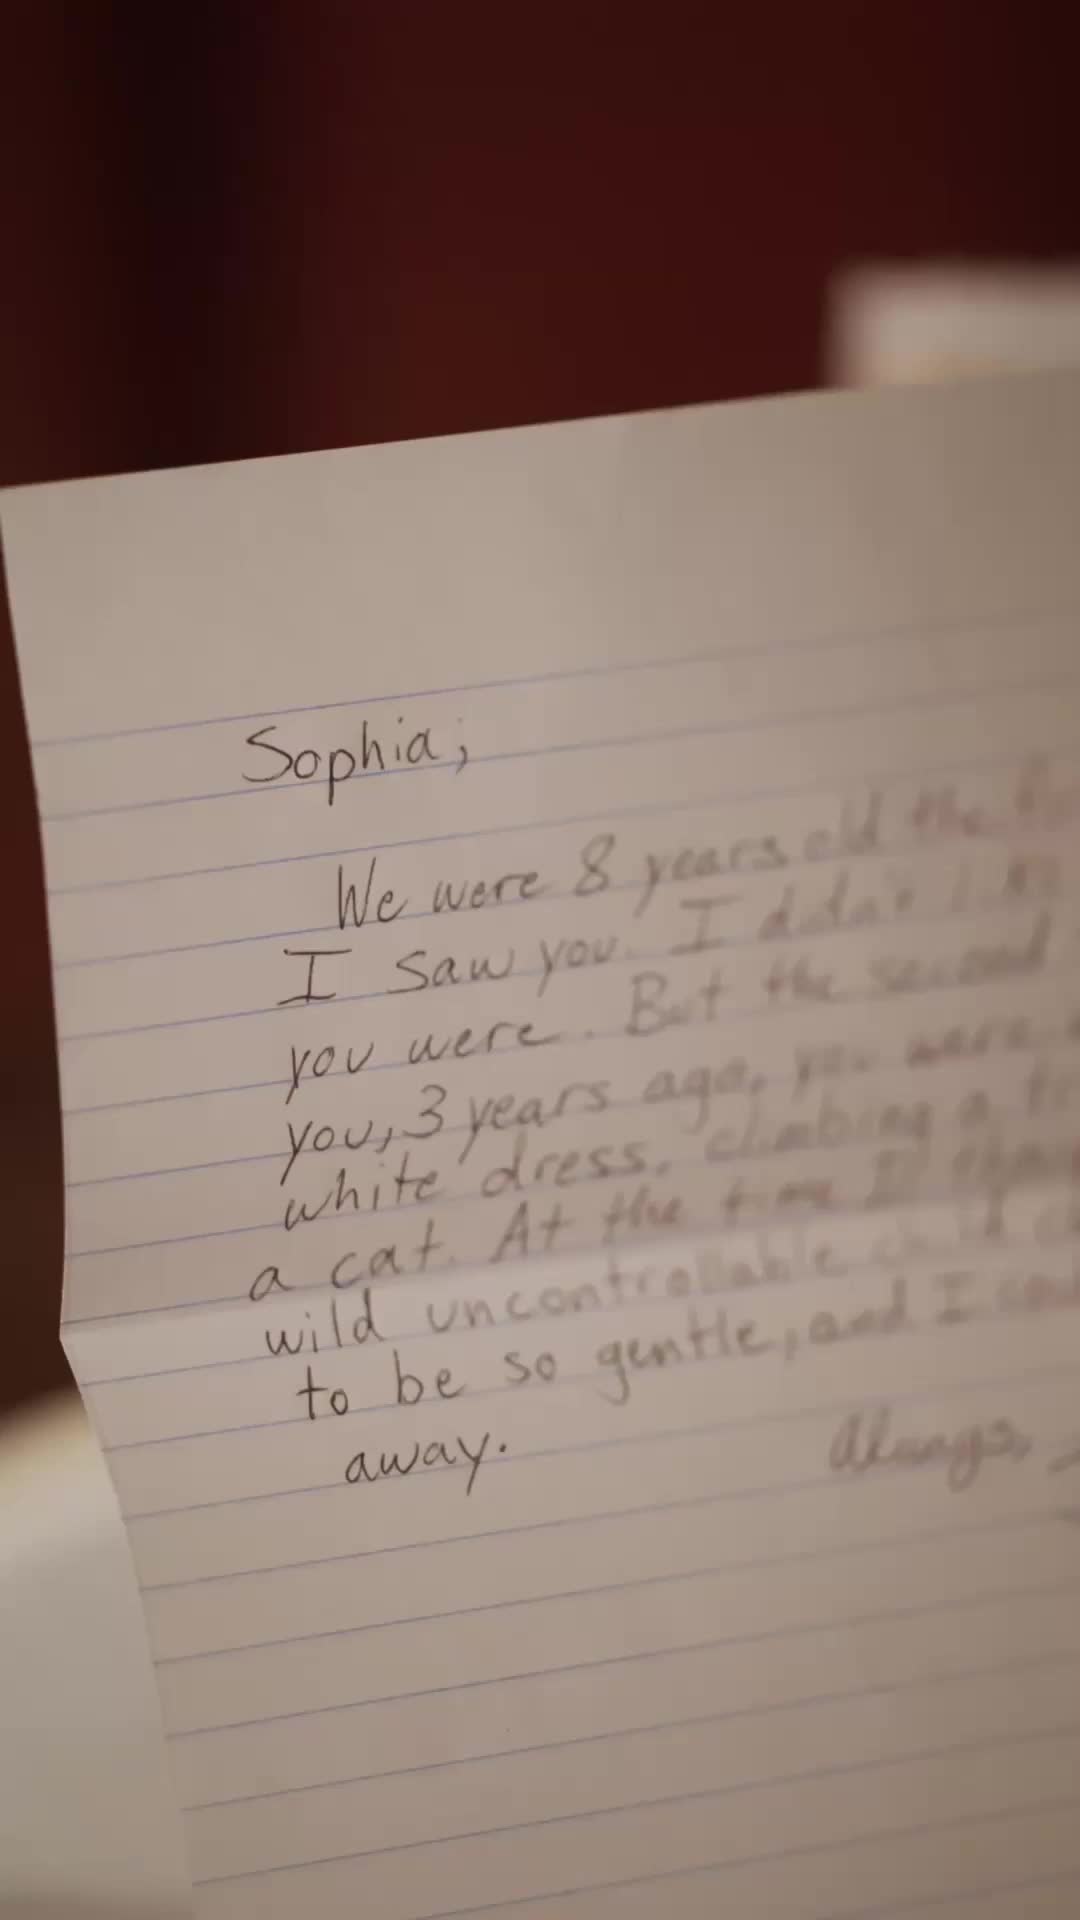 Sophia;
We were 8 years old the
I saw you. I didn't
you were. But the second
you, 3 years ago, you were
white dress, climbing a
a cat. At the time I
wild uncontrollable child
to be so gentle, and I
away.
Always,